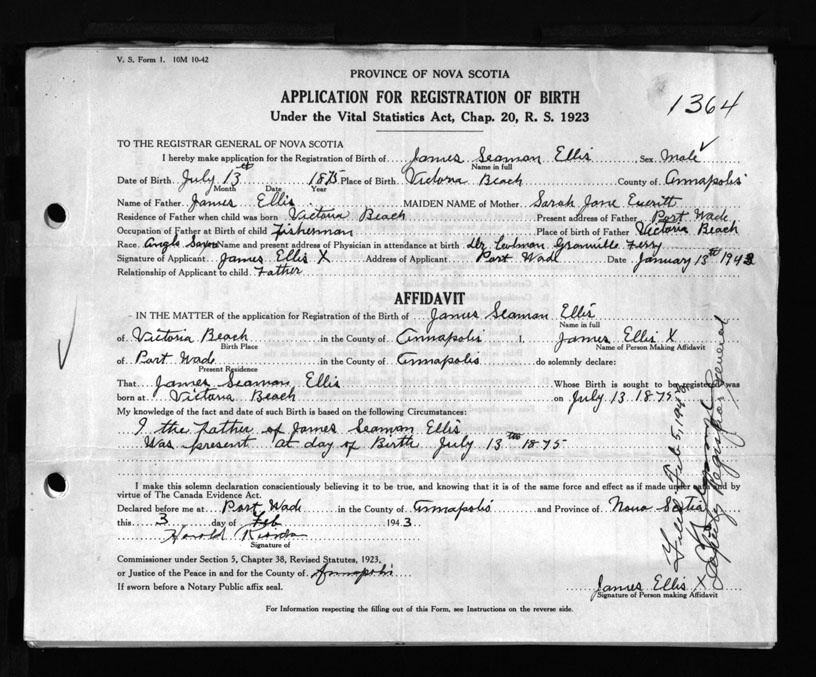 V. S. Form 1. 10M 10-42
PROVINCE OF NOVA SCOTIA
APPLICATION FOR REGISTRATION OF BIRTH
1364
Under the Vital Statistics Act, Chap. 20, R. S. 1923
TO THE REGISTRAR GENERAL OF NOVA SCOTIA
I hereby make application for the Registration of Birth of James Seaman Ellis Sex Male
Name in full
Date of Birth July 13th 1875 Place of Birth Victoria Beach County of Annapolis
Month Date Year
Name of Father James Ellis MAIDEN NAME of Mother Sarah Jane Everitt
Residence of Father when child was born Victoria Beach Present address of Father Port Wade
Occupation of Father at Birth of child Fisherman Place of birth of Father Victoria Beach
Race Anglo Saxon Name and present address of Physician in attendance at birth Dr. Granville Ferry
Signature of Applicant James Ellis X Address of Applicant Port Wade Date January 13th 1943
Relationship of Applicant to child Father
AFFIDAVIT
IN THE MATTER of the application for Registration of the Birth of James Seaman Ellis
Name in full
of Victoria Beach in the County of Annapolis I, James Ellis X
Birth Place Name of Person Making Affidavit
of Port Wade in the County of Annapolis do solemnly declare:
Present Residence
That James Seaman Ellis Whose Birth is sought to be registered was
born at Victoria Beach on July 13 1875
My knowledge of the fact and date of such Birth is based on the following Circumstances:
I the Father of James Seaman Ellis
Was present at day of Birth July 13th 1875
I make this solemn declaration conscientiously believing it to be true, and knowing that it is of the same force and effect as if made under oath and by
virtue of The Canada Evidence Act.
Declared before me at Port Wade in the County of Annapolis and Province of Nova Scotia
this 3 day of Feb 1943.
Harold
Signature of
Commissioner under Section 5, Chapter 38, Revised Statutes, 1923,
or Justice of the Peace in and for the County of Annapolis
If sworn before a Notary Public affix seal.
James Ellis X
Signature of Person making Affidavit
For Information respecting the filling out of this Form, see Instructions on the reverse side.
Filed Feb 5, 1943
Deputy Registrar General